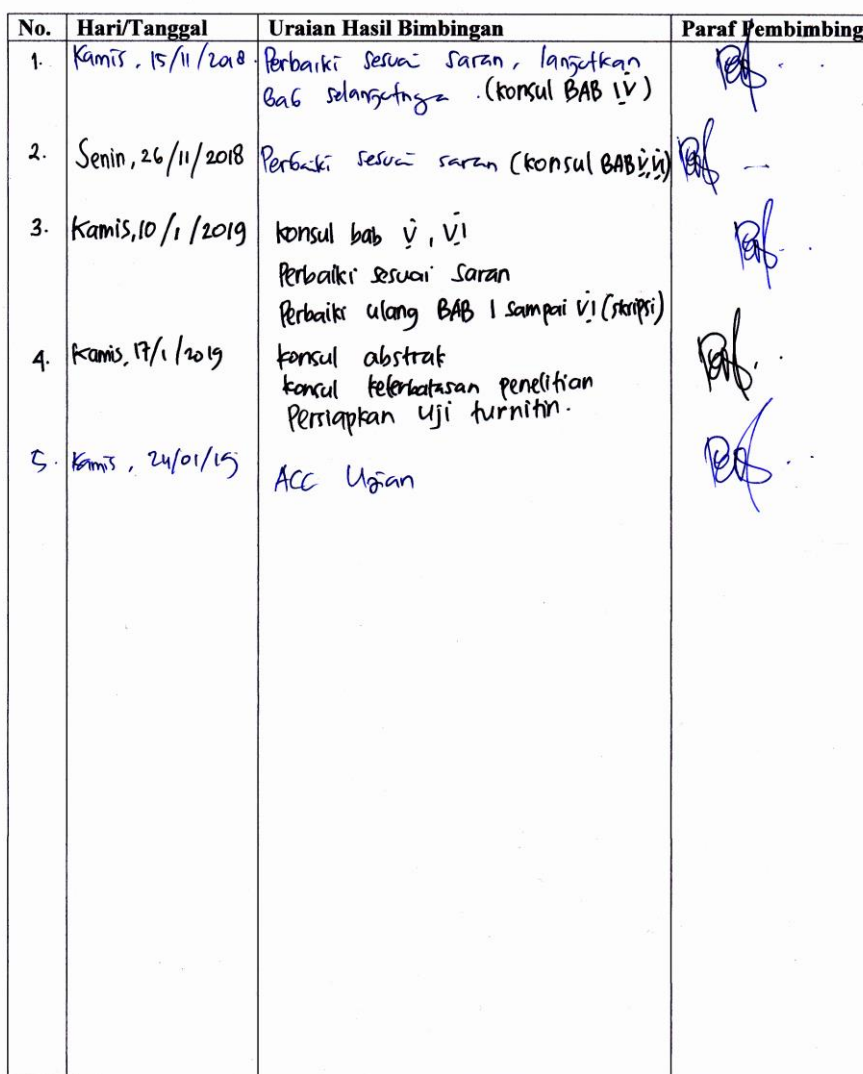 No. Hari/Tanggal Uraian Hasil Bimbingan Paraf Pembimbing
1. Kamis, 15/11/2018. Perbaiki sesuai saran, lanjutkan
Bab selanjutnya. (konsul BAB IV)
2. Senin, 26/11/2018 Perbaiki sesuai saran (konsul BAB V, VI)
3. Kamis, 10/1/2019 konsul bab V, VI
Perbaiki sesuai saran
Perbaiki ulang BAB I sampai VI (skripsi)
4. Kamis, 17/1/2019 konsul abstrak
konsul keterbatasan penelitian
Persiapkan Uji turnitin.
5. Kamis, 24/01/19 ACC Ujian